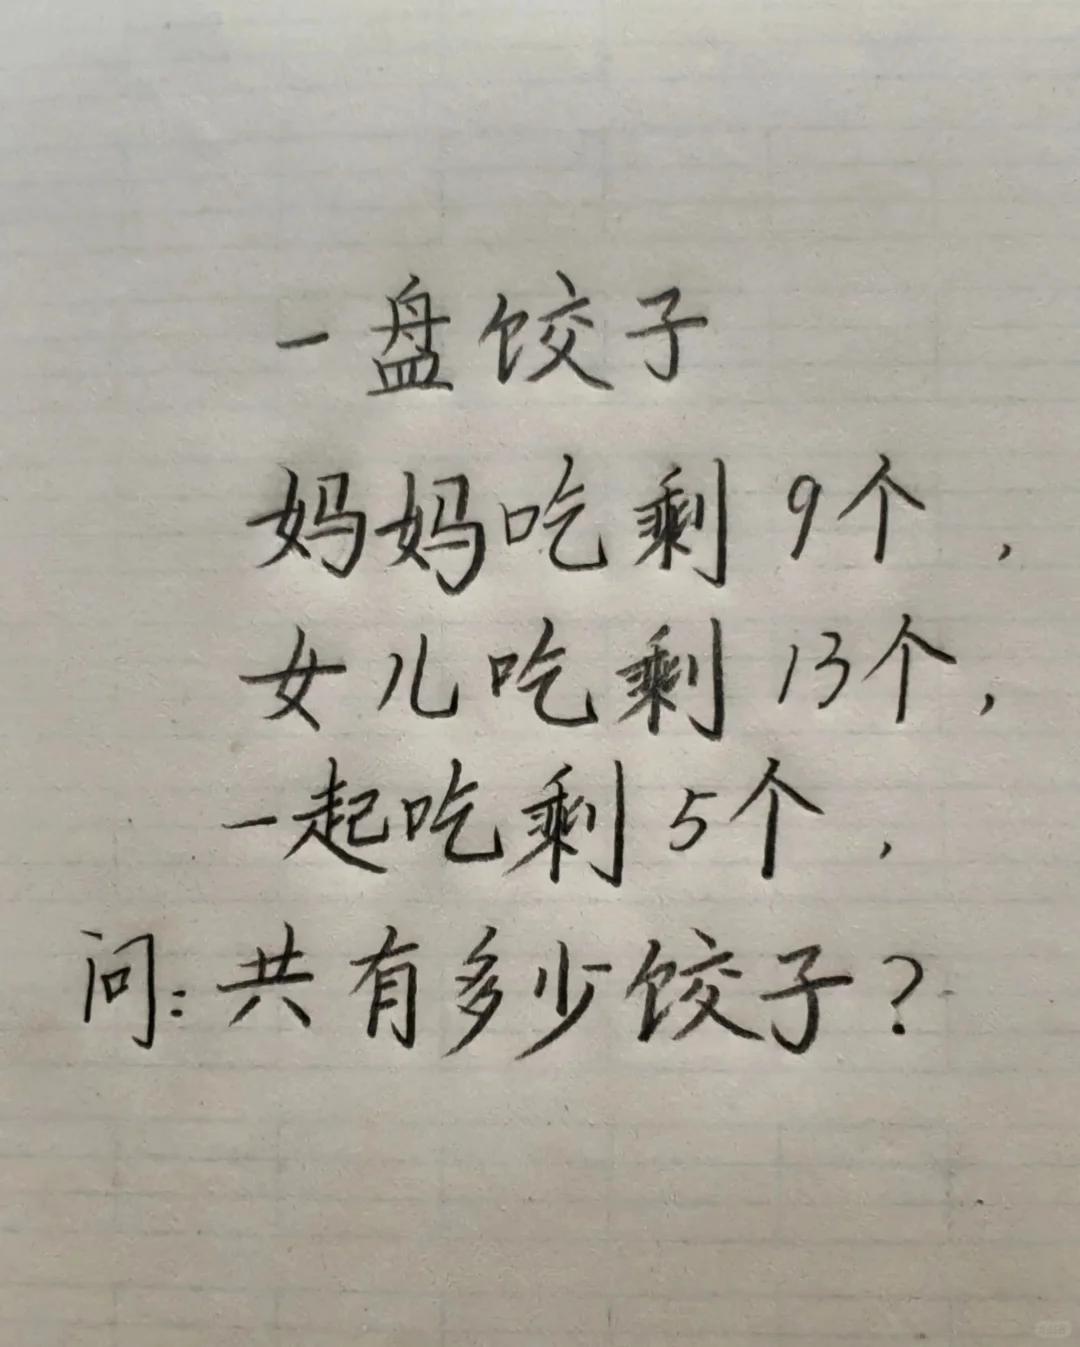 一盘饺子
妈妈吃剩9个,
女儿吃剩13个,
一起吃剩5个,
问:共有多少饺子?